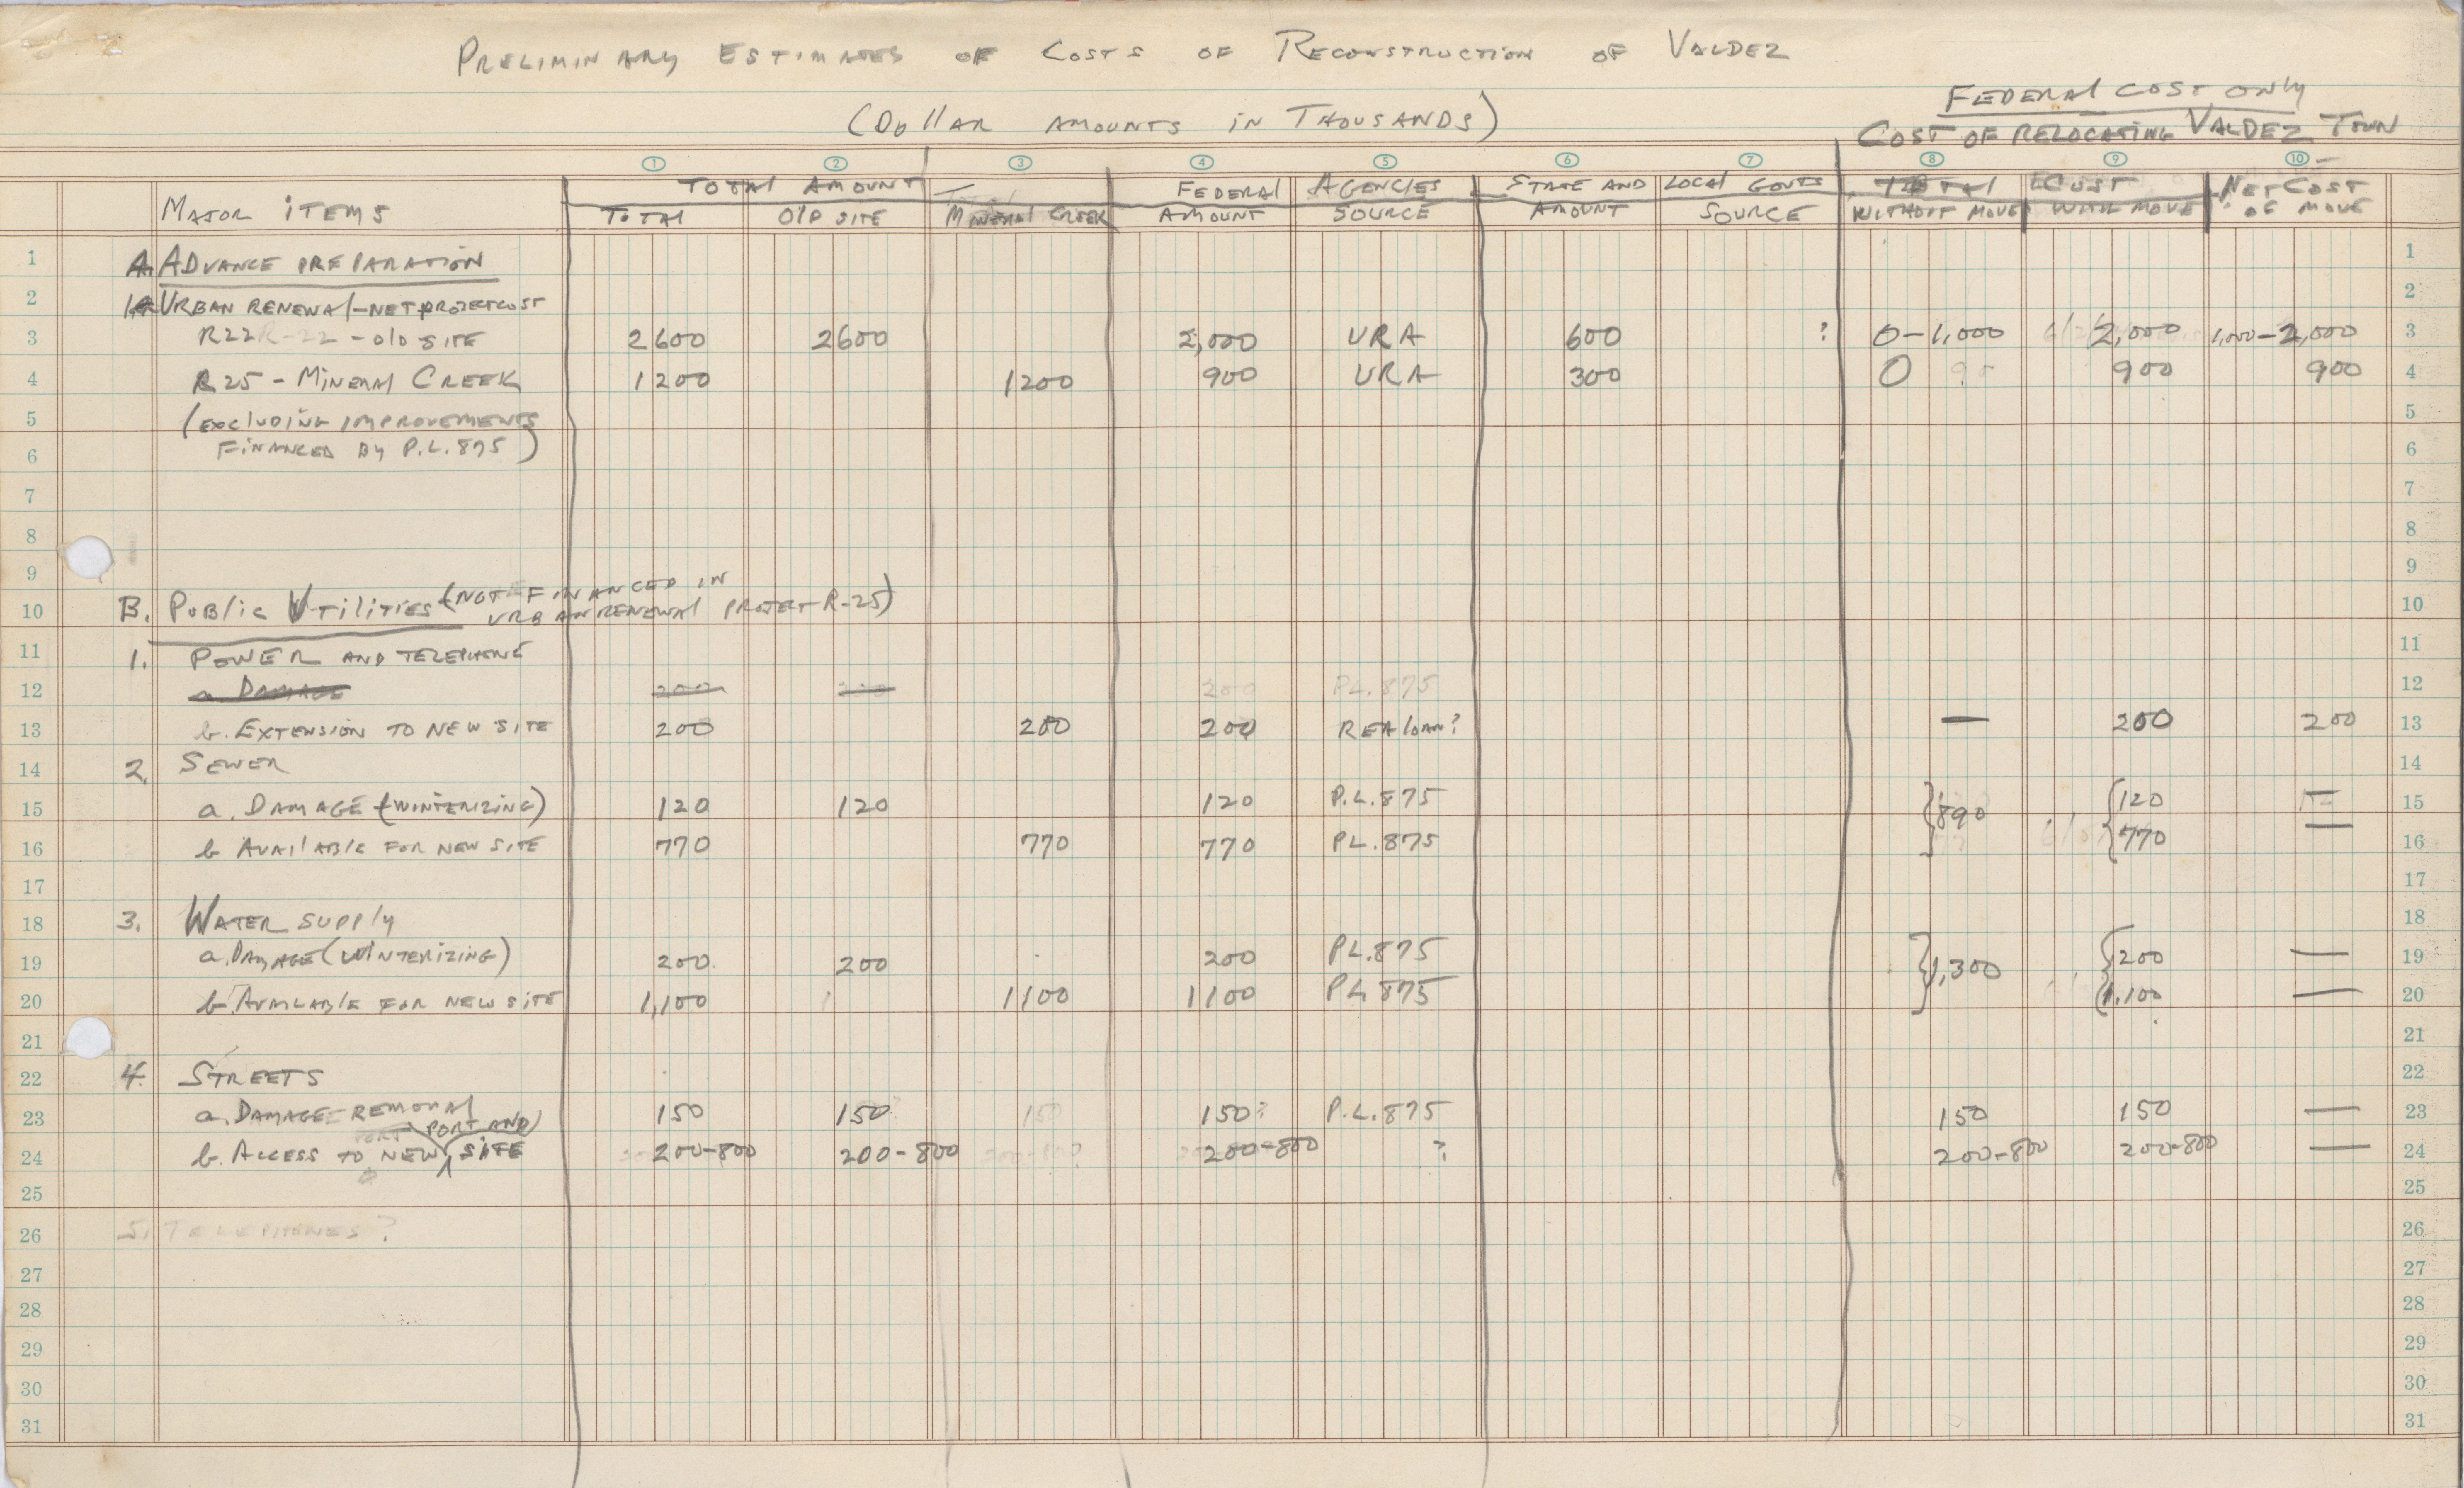 PRELIMINARY ESTIMATES OF COSTS OF RECONSTRUCTION OF VALDEZ
FEDERAL COST ONLY
(DOLLAR AMOUNTS IN THOUSANDS)
COST OF RELOCATING VALDEZ TOWN
1 2 3 4 5 6 7 8 9 10
TOTAL AMOUNT FEDERAL AGENCIES STATE AND LOCAL GOVTS TOTAL COST NET COST
MAJOR ITEMS TOTAL OLD SITE MINERAL CREEK AMOUNT SOURCE AMOUNT SOURCE WITHOUT MOVE WITH MOVE OF MOVE
1 A. ADVANCE PREPARATION 1
2 1. URBAN RENEWAL-NET PROJECT COST 2
3 R22 R-22 - OLD SITE 2600 2600 2,000 URA 600 ? 0-1,000 2,000 1,000-2,000 3
4 R25 - MINERAL CREEK 1200 1200 900 URA 300 0 900 900 4
5 (EXCLUDING IMPROVEMENTS 5
6 FINANCED BY P.L. 875) 6
7 7
8 8
9 9
10 B. PUBLIC UTILITIES (NOT FINANCED IN 10
URBAN RENEWAL PROJECT R-25)
11 1. POWER AND TELEPHONE 11
12 a DAMAGE 200 200 200 PL. 875 12
13 b. EXTENSION TO NEW SITE 200 200 200 REA LOAN? — 200 200 13
14 2. SEWER 14
15 a. DAMAGE (WINTERIZING) 120 120 120 P.L. 875 890 120 — 15
16 b AVAILABLE FOR NEW SITE 770 770 770 PL. 875 770 — 16
17 17
18 3. WATER SUPPLY 18
19 a. DAMAGE (WINTERIZING) 200 200 200 PL. 875 1,300 200 — 19
20 b. AVAILABLE FOR NEW SITE 1,100 1100 1100 PL 875 1,100 — 20
21 21
22 4. STREETS 22
23 a. DAMAGE - REMOVAL 150 150 ? 150 150? P.L. 875 150 150 — 23
PORT PORT AND
24 b. ACCESS TO NEW SITE 200-800 200-800 200-800 200-800 ? 200-800 200-800 — 24
25 25
26 5. TELEPHONES? 26
27 27
28 28
29 29
30 30
31 31